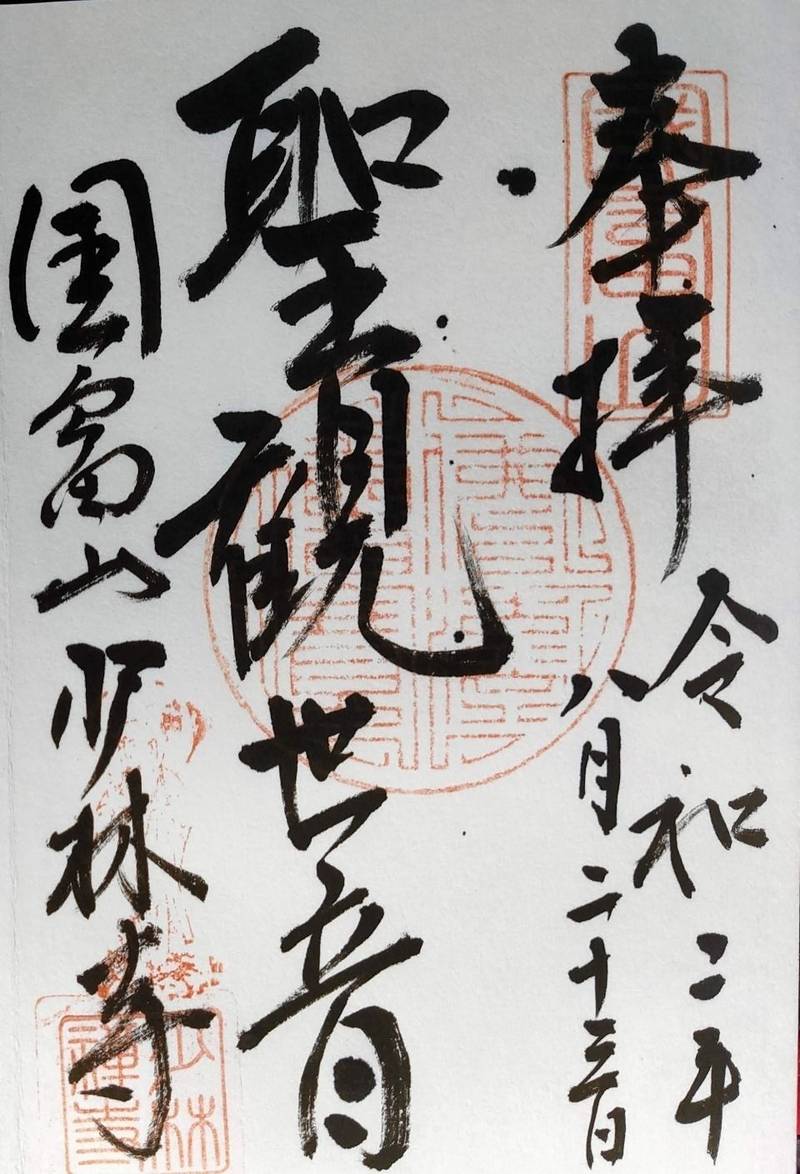 奉拝
令和二年
八月二十三日
聖観世音
国富山少林寺